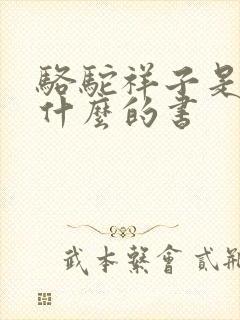 駱駝祥子是
什麼的書
武本繫會貳瓶